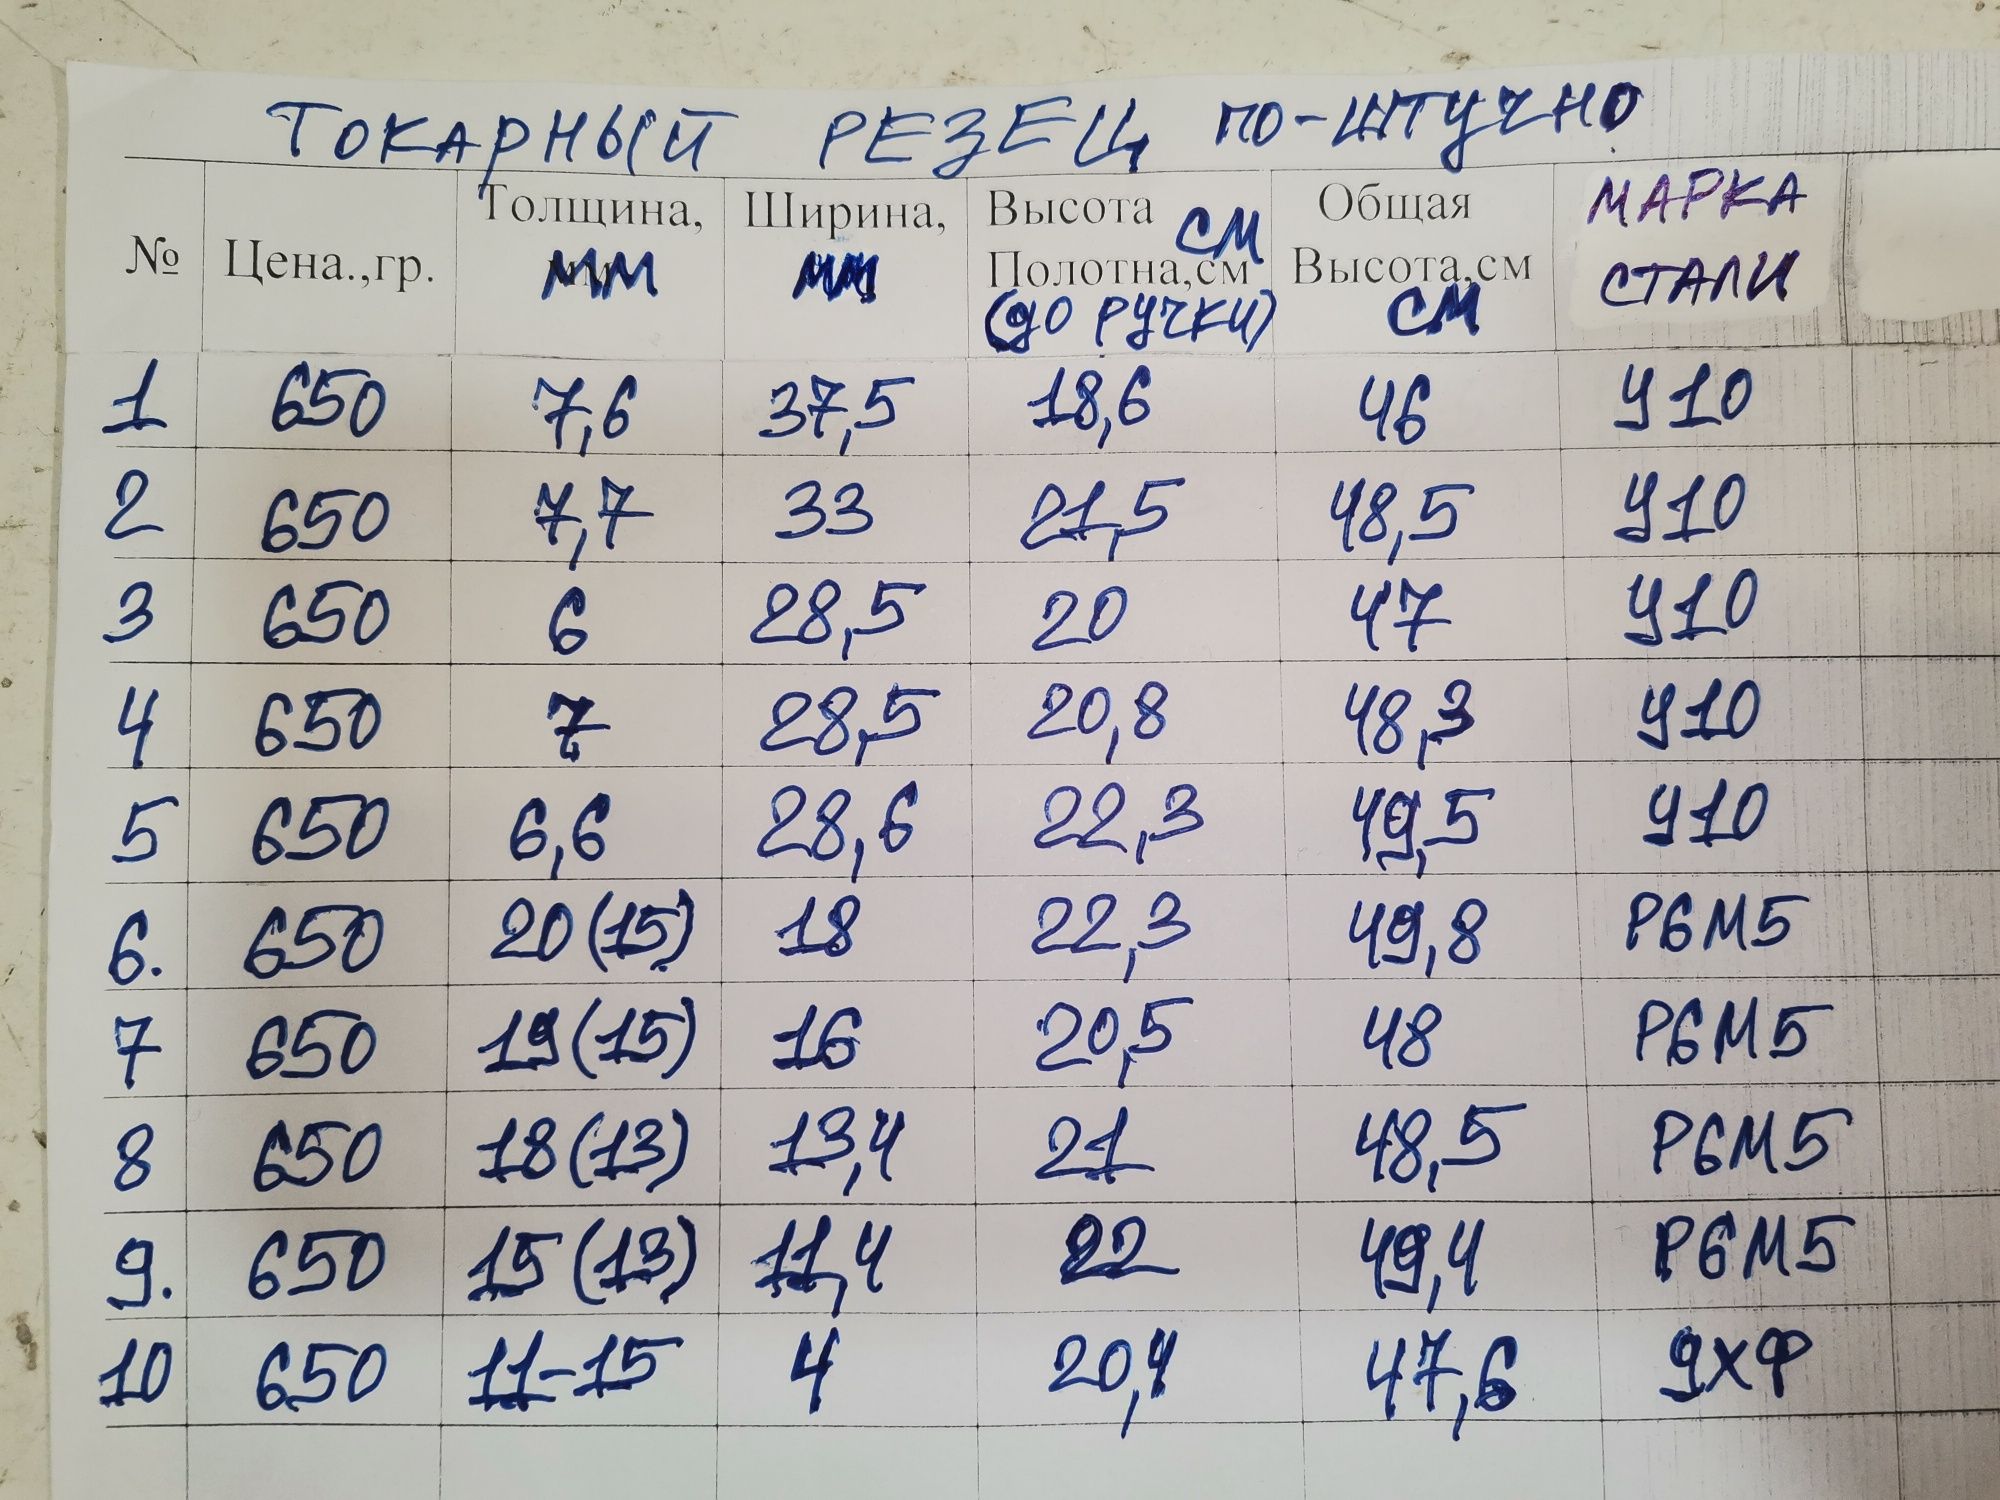 ТОКАРНЫЙ РЕЗЕЦ ПО-ШТУЧНО
№ Цена.,гр. Толщина, мм Ширина, мм Высота Полотна,см см (до ручки) Общая Высота,см см МАРКА СТАЛИ
1 650 7,6 37,5 18,6 46 У10
2 650 7,7 33 21,5 48,5 У10
3 650 6 28,5 20 47 У10
4 650 7 28,5 20,8 48,3 У10
5 650 6,6 28,6 22,3 49,5 У10
6. 650 20(15) 18 22,3 49,8 Р6М5
7 650 19(15) 16 20,5 48 Р6М5
8 650 18(13) 13,4 21 48,5 Р6М5
9. 650 15(13) 11,4 22 49,4 Р6М5
10 650 11-15 4 20,4 47,6 9ХФ